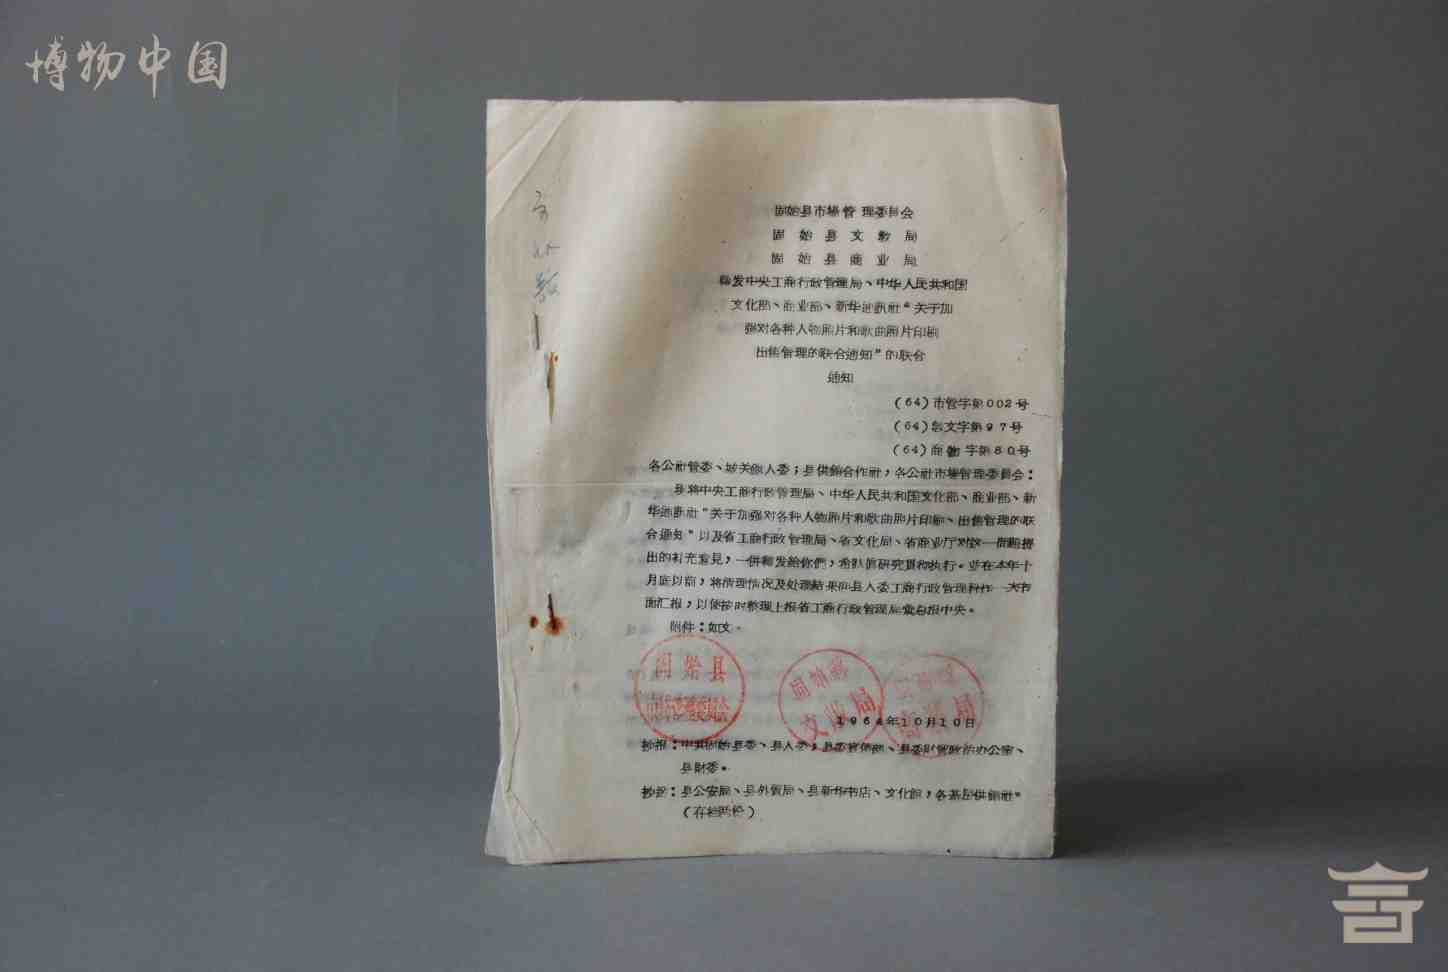 博物中国
固始县市場管理委員会
固始县文教局
固始县商业局
轉发中央工商行政管理局、中华人民共和国
文化部、商业部、新华通訊社“关于加
强对各种人物照片和歌曲照片印刷
出售管理的联合通知”的联合
通知
(64)市管字第002号
(64)文字第97号
(64)商字第80号
各公社管委、城关鎮人委；县供銷合作社，各公社市場管理委員会：
县将中央工商行政管理局、中华人民共和国文化部、商业部、新
华通訊社“关于加强对各种人物照片和歌曲照片印刷、出售管理的联
合通知”以及省工商行政管理局、省文化局、省商业厅对这一問題提
出的补充意見，一併轉发給你們，希认真研究貫彻执行。並在本年十
月底以前，将清理情况及处理結果向县人委工商行政管理科作一次书
面汇报，以便按时整理上报省工商行政管理局彙总报中央。
附件：如文。
固始县
固始县
文教局
局
1964年10月10日
抄报：中共固始县委、县人委；县委宣传部、县委財貿政治办公室、
县財委。
抄送：县公安局、县外貿局、县新华书店、文化館，各基层供銷社。
(存档两份)